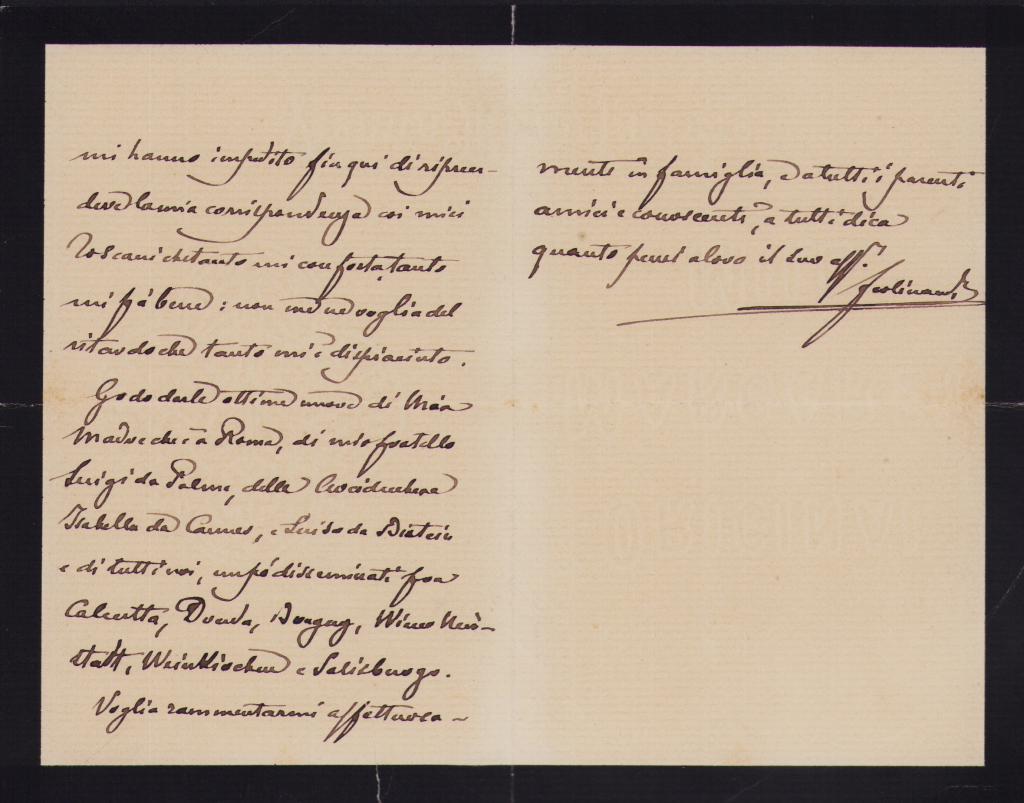 mi hanno impedito fin qui di ripren-
dere la mia corrispondenza coi miei
Toscani che tanto mi conforta, tanto
mi fà bene: non me ne voglia del
ritardo che tanto mi è dispiaciuto.
Godo darle ottime nuove di Mia
Madre che è a Roma, di mio fratello
Luigi da Palma, della Arciduchessa
Isabella da Cannes, e Luisa da
e di tutti noi, un pó disseminati fra
Calcutta, Bregenz, Wiener Neu-
statt, e Salisburgo.
Voglia rammentarmi affettuosa-
mente in famiglia, e a tutti i parenti
amici e conoscenti, a tutti dica
quanto pensi a loro il suo aff.
Ferdinando